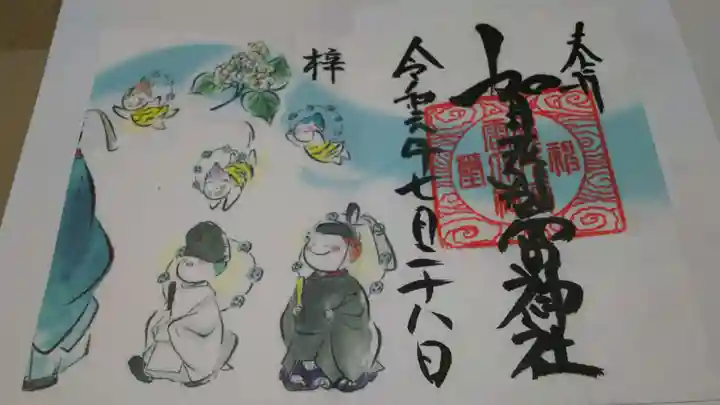 奉拝
加賀別雷神社
令和六年七月二十八日
梓